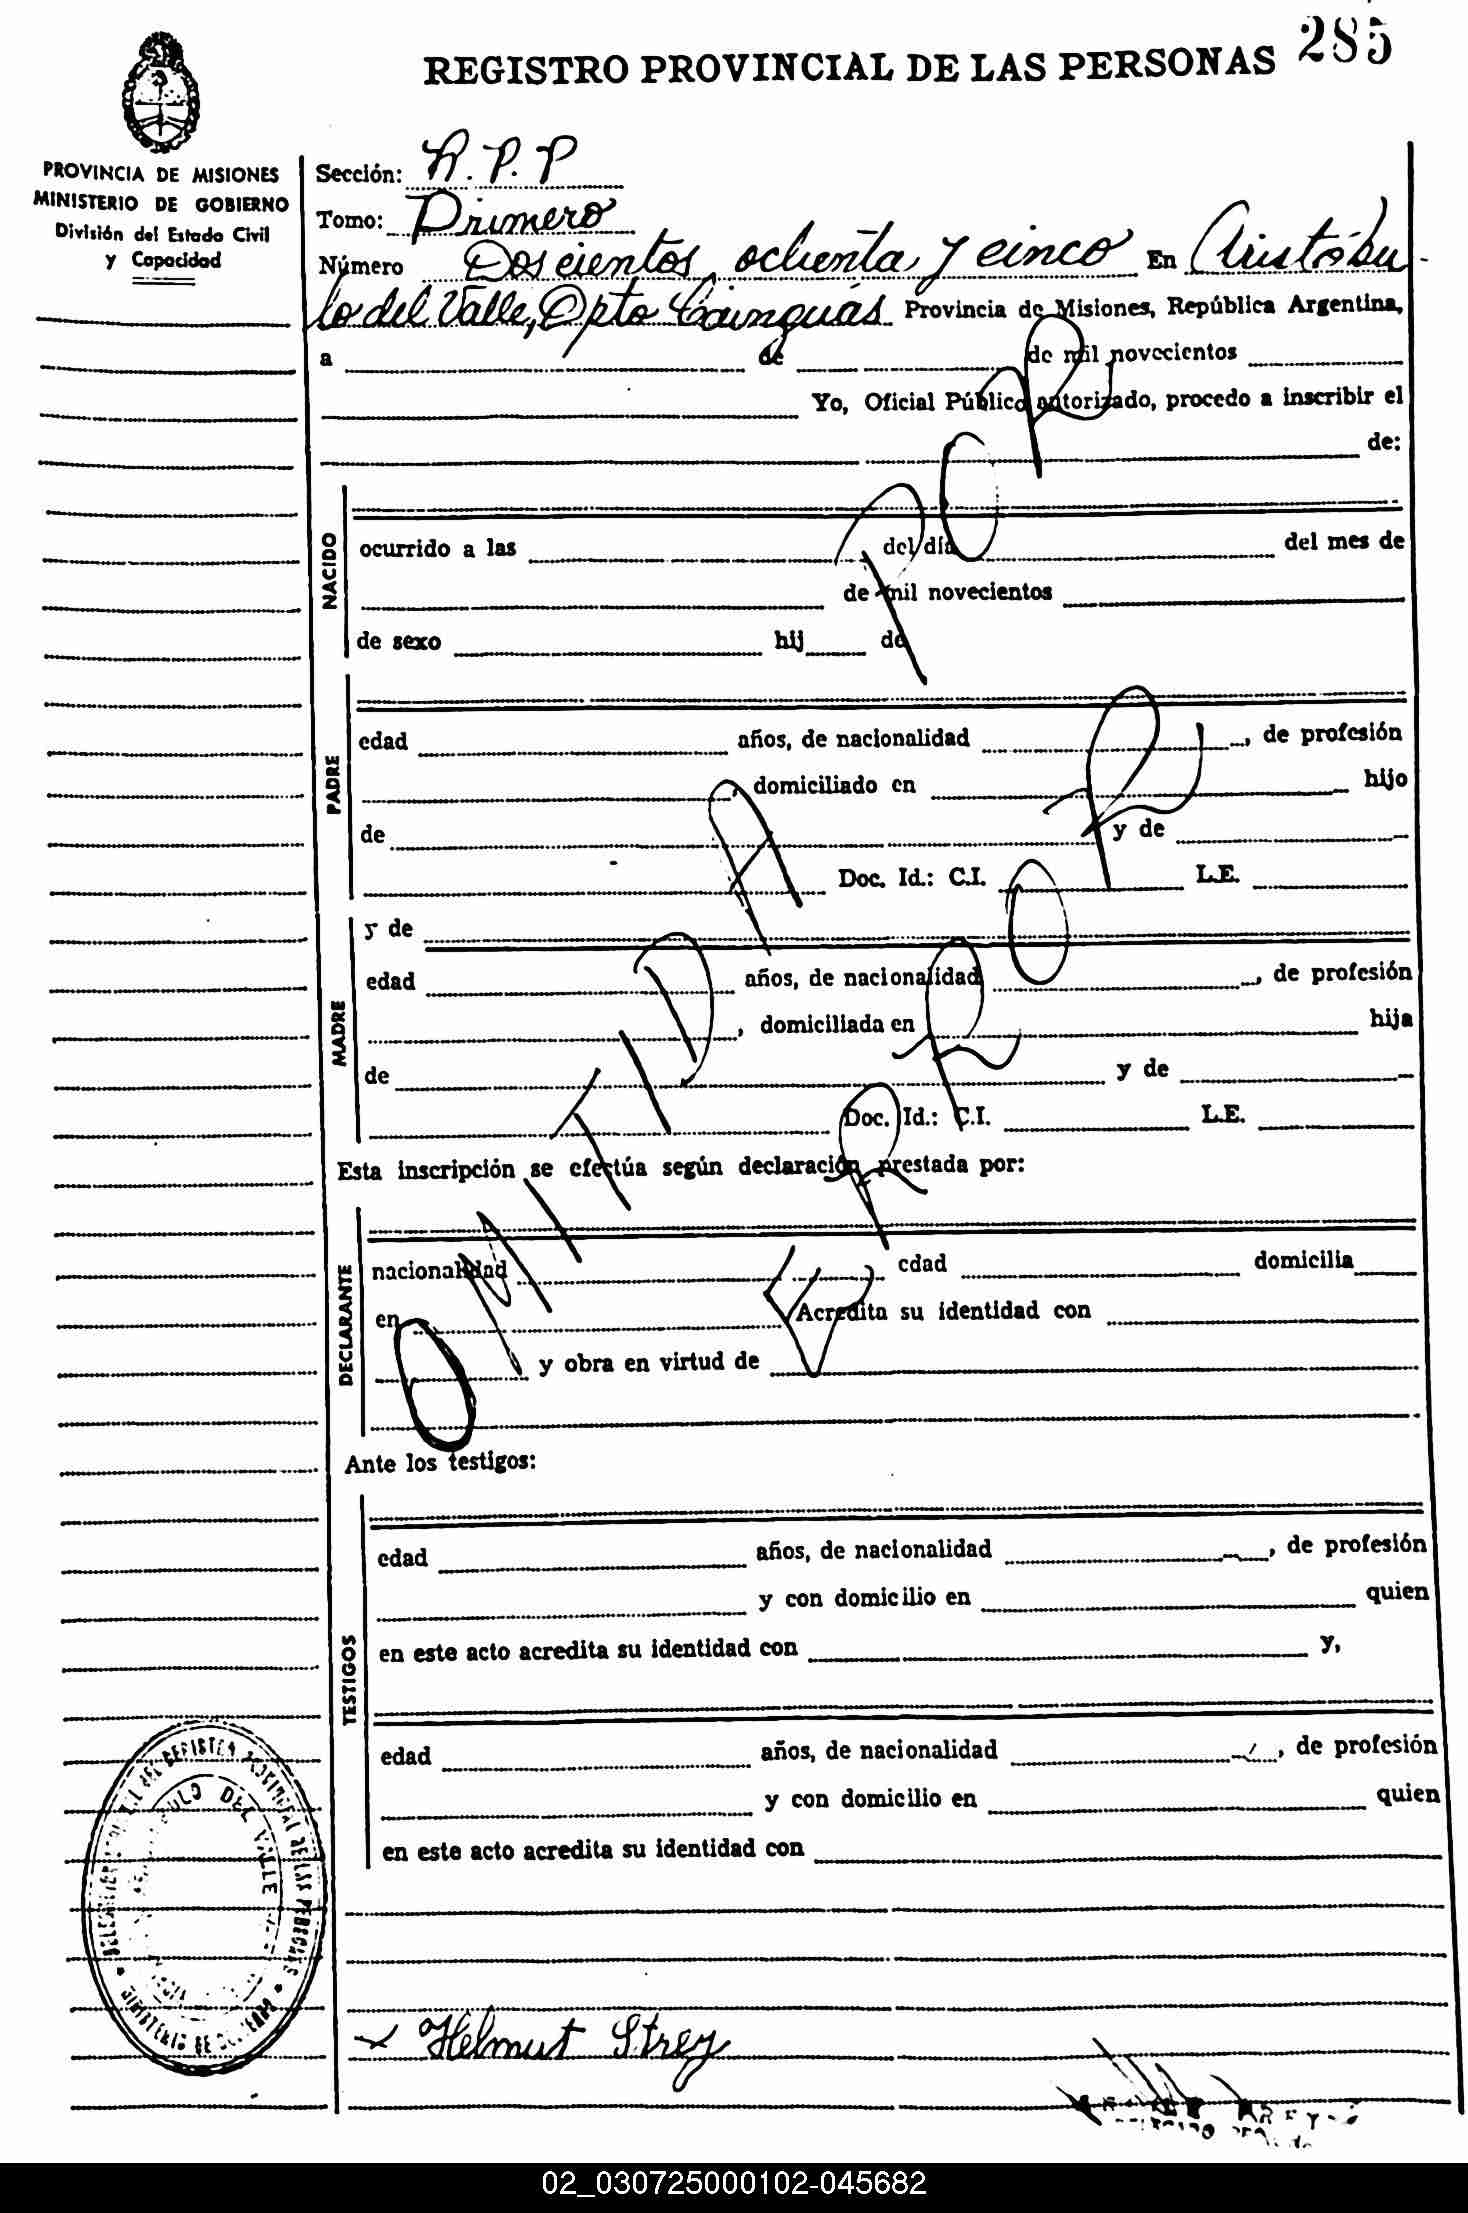 285
REGISTRO PROVINCIAL DE LAS PERSONAS
PROVINCIA DE MISIONES
MINISTERIO DE GOBIERNO
División del Estado Civil
y Capacidad
Sección: R.P.P
Tomo: Primero
Número Doscientos ochenta y cinco En Aristóbu-
lo del Valle, Dpto Cainguás Provincia de Misiones, República Argentina,
a de de mil novecientos
Yo, Oficial Público autorizado, procedo a inscribir el
de:
NACIDO
ocurrido a las del día del mes de
de mil novecientos
de sexo hij de
PADRE
edad años, de nacionalidad , de profesión
, domiciliado en hijo
de y de
Doc. Id.: C.I. L.E.
MADRE
y de
edad años, de nacionalidad , de profesión
, domiciliada en hija
de y de
Doc. Id.: C.I. L.E.
Esta inscripción se efectúa según declaración prestada por:
OMITIDA POR ERROR
DECLARANTE
nacionalidad edad domicilia
en Acredita su identidad con
y obra en virtud de
Ante los testigos:
TESTIGOS
edad años, de nacionalidad , de profesión
y con domicilio en quien
en este acto acredita su identidad con y,
edad años, de nacionalidad , de profesión
y con domicilio en quien
en este acto acredita su identidad con
DEL VALLE
Helmut Strey
02_030725000102-045682